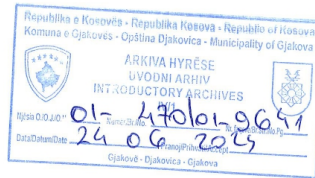 Republika e Kosovës - Republika Kosova - Republic of Kosova
Komuna e Gjakovës - Opština Djakovica - Municipality of Gjakova
ARKIVA HYRËSE
UVODNI ARHIV
INTRODUCTORY ARCHIVES
Njësia O/OJ/O 01- 470/01-9641
Data/Datum/Date 24 06 2025
Gjakovë - Djakovica - Gjakova